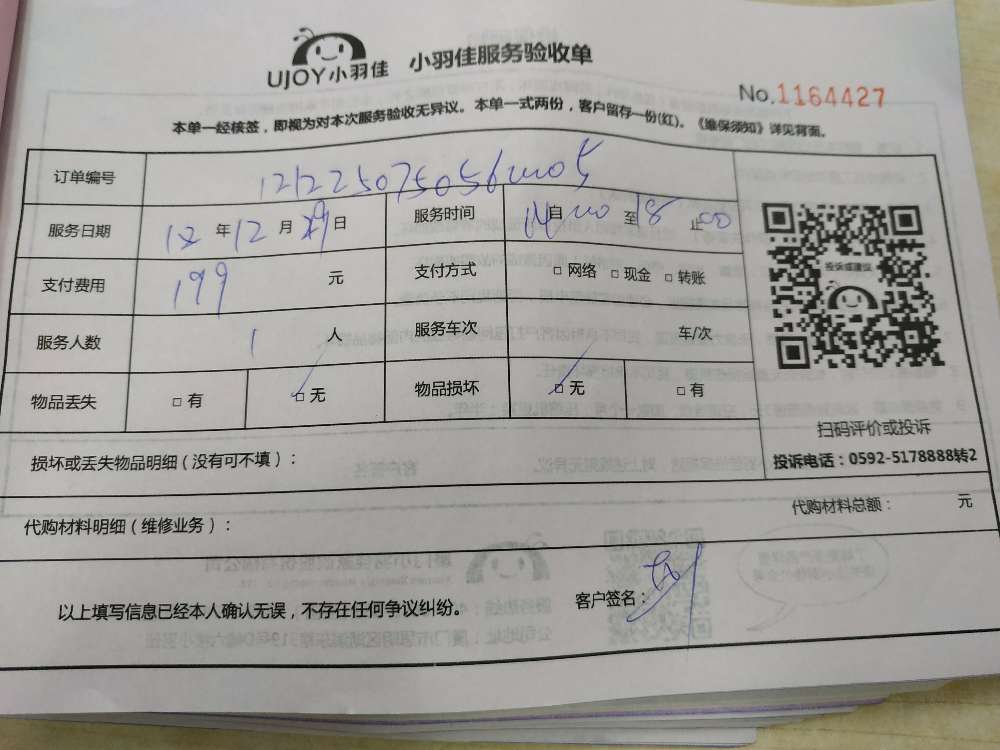 UJOY小羽佳 小羽佳服务验收单
No.1164427
本单一经核签，即视为对本次服务验收无异议。本单一式两份，客户留存一份(红)。《维保须知》详见背面。
订单编号
服务日期 12 年 12 月 29 日 服务时间 14 自 00 至 18 止 00
支付费用 199 元 支付方式 □ 网络 □ 现金 □ 转账
投诉或建议
服务人数 1 人 服务车次 车/次
物品丢失 □ 有 □ 无 物品损坏 □ 无 □ 有
扫码评价或投诉
投诉电话：0592-5178888转2
损坏或丢失物品明细（没有可不填）：
代购材料明细（维修业务）： 代购材料总额： 元
以上填写信息已经本人确认无误，不存在任何争议纠纷。 客户签名：